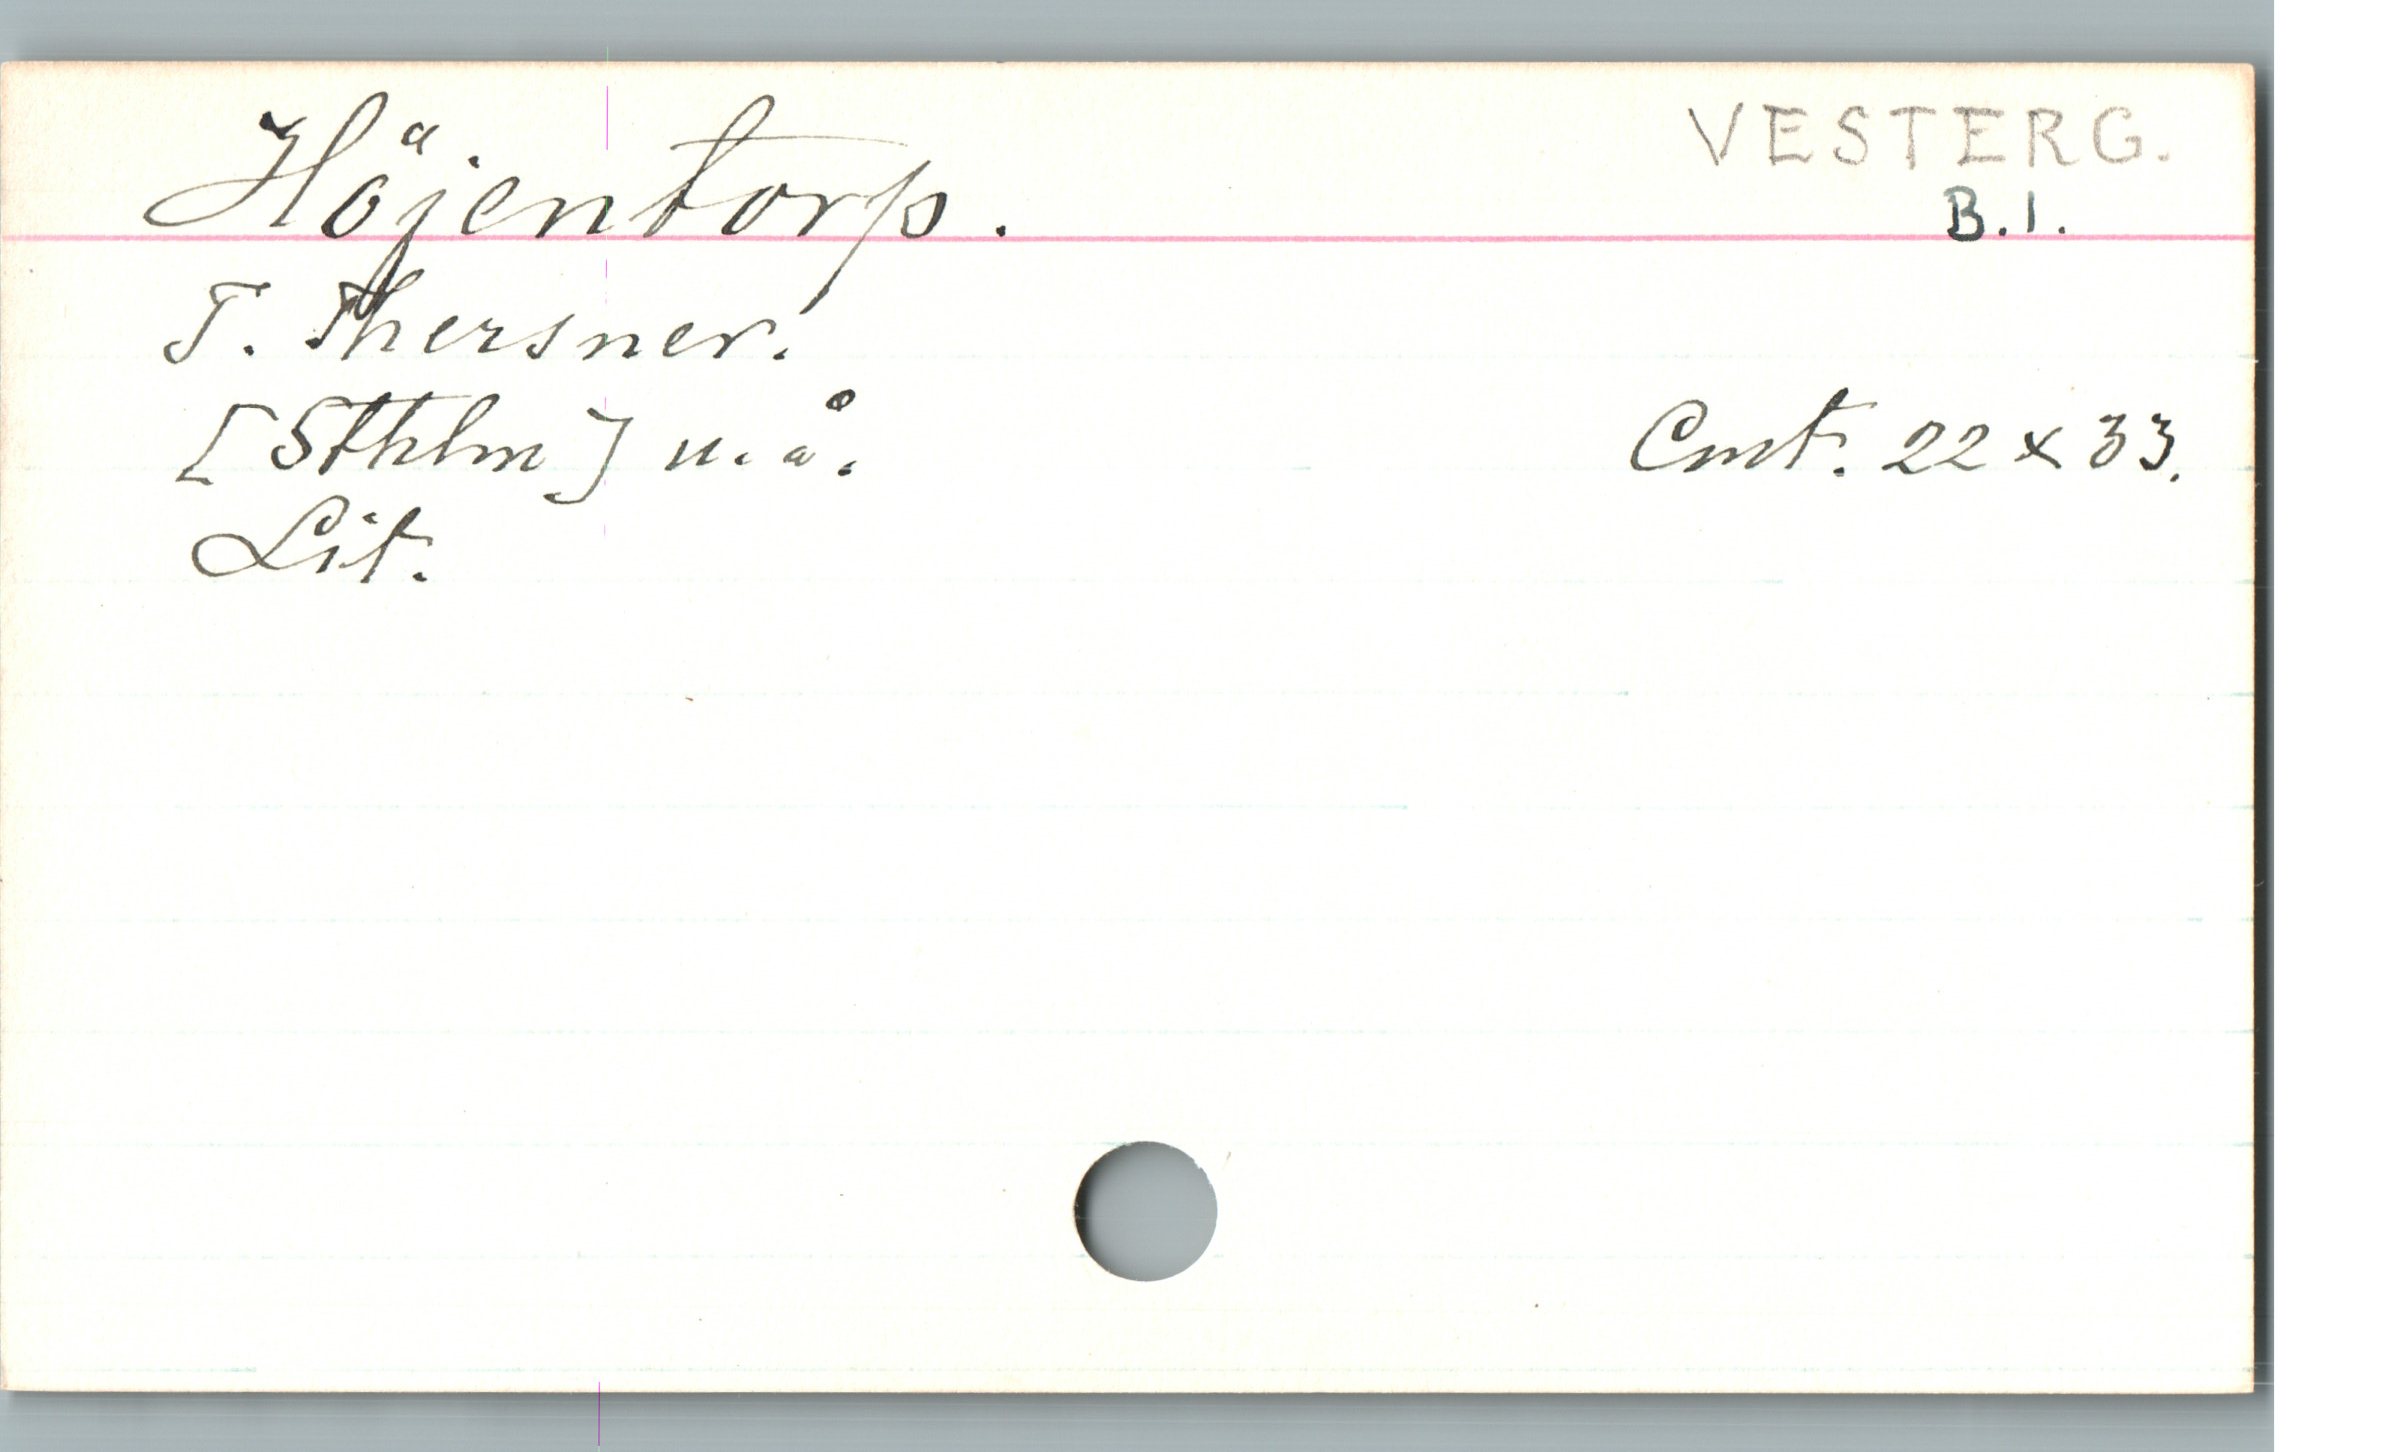 Höjentorp.
VESTERG.
B.1.
T. Thersner.
[Sthlm] u.å.
Cmt. 22 x 33.
Lit.